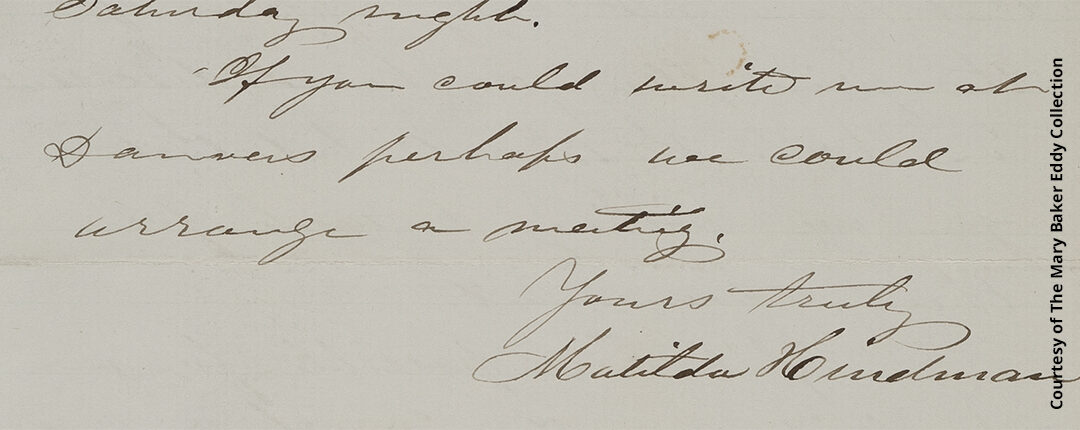 Saturday night.
If you could write me at
Danvers perhaps we could
arrange a meeting.
Yours truly
Matilda Hindman
Courtesy of The Mary Baker Eddy Collection